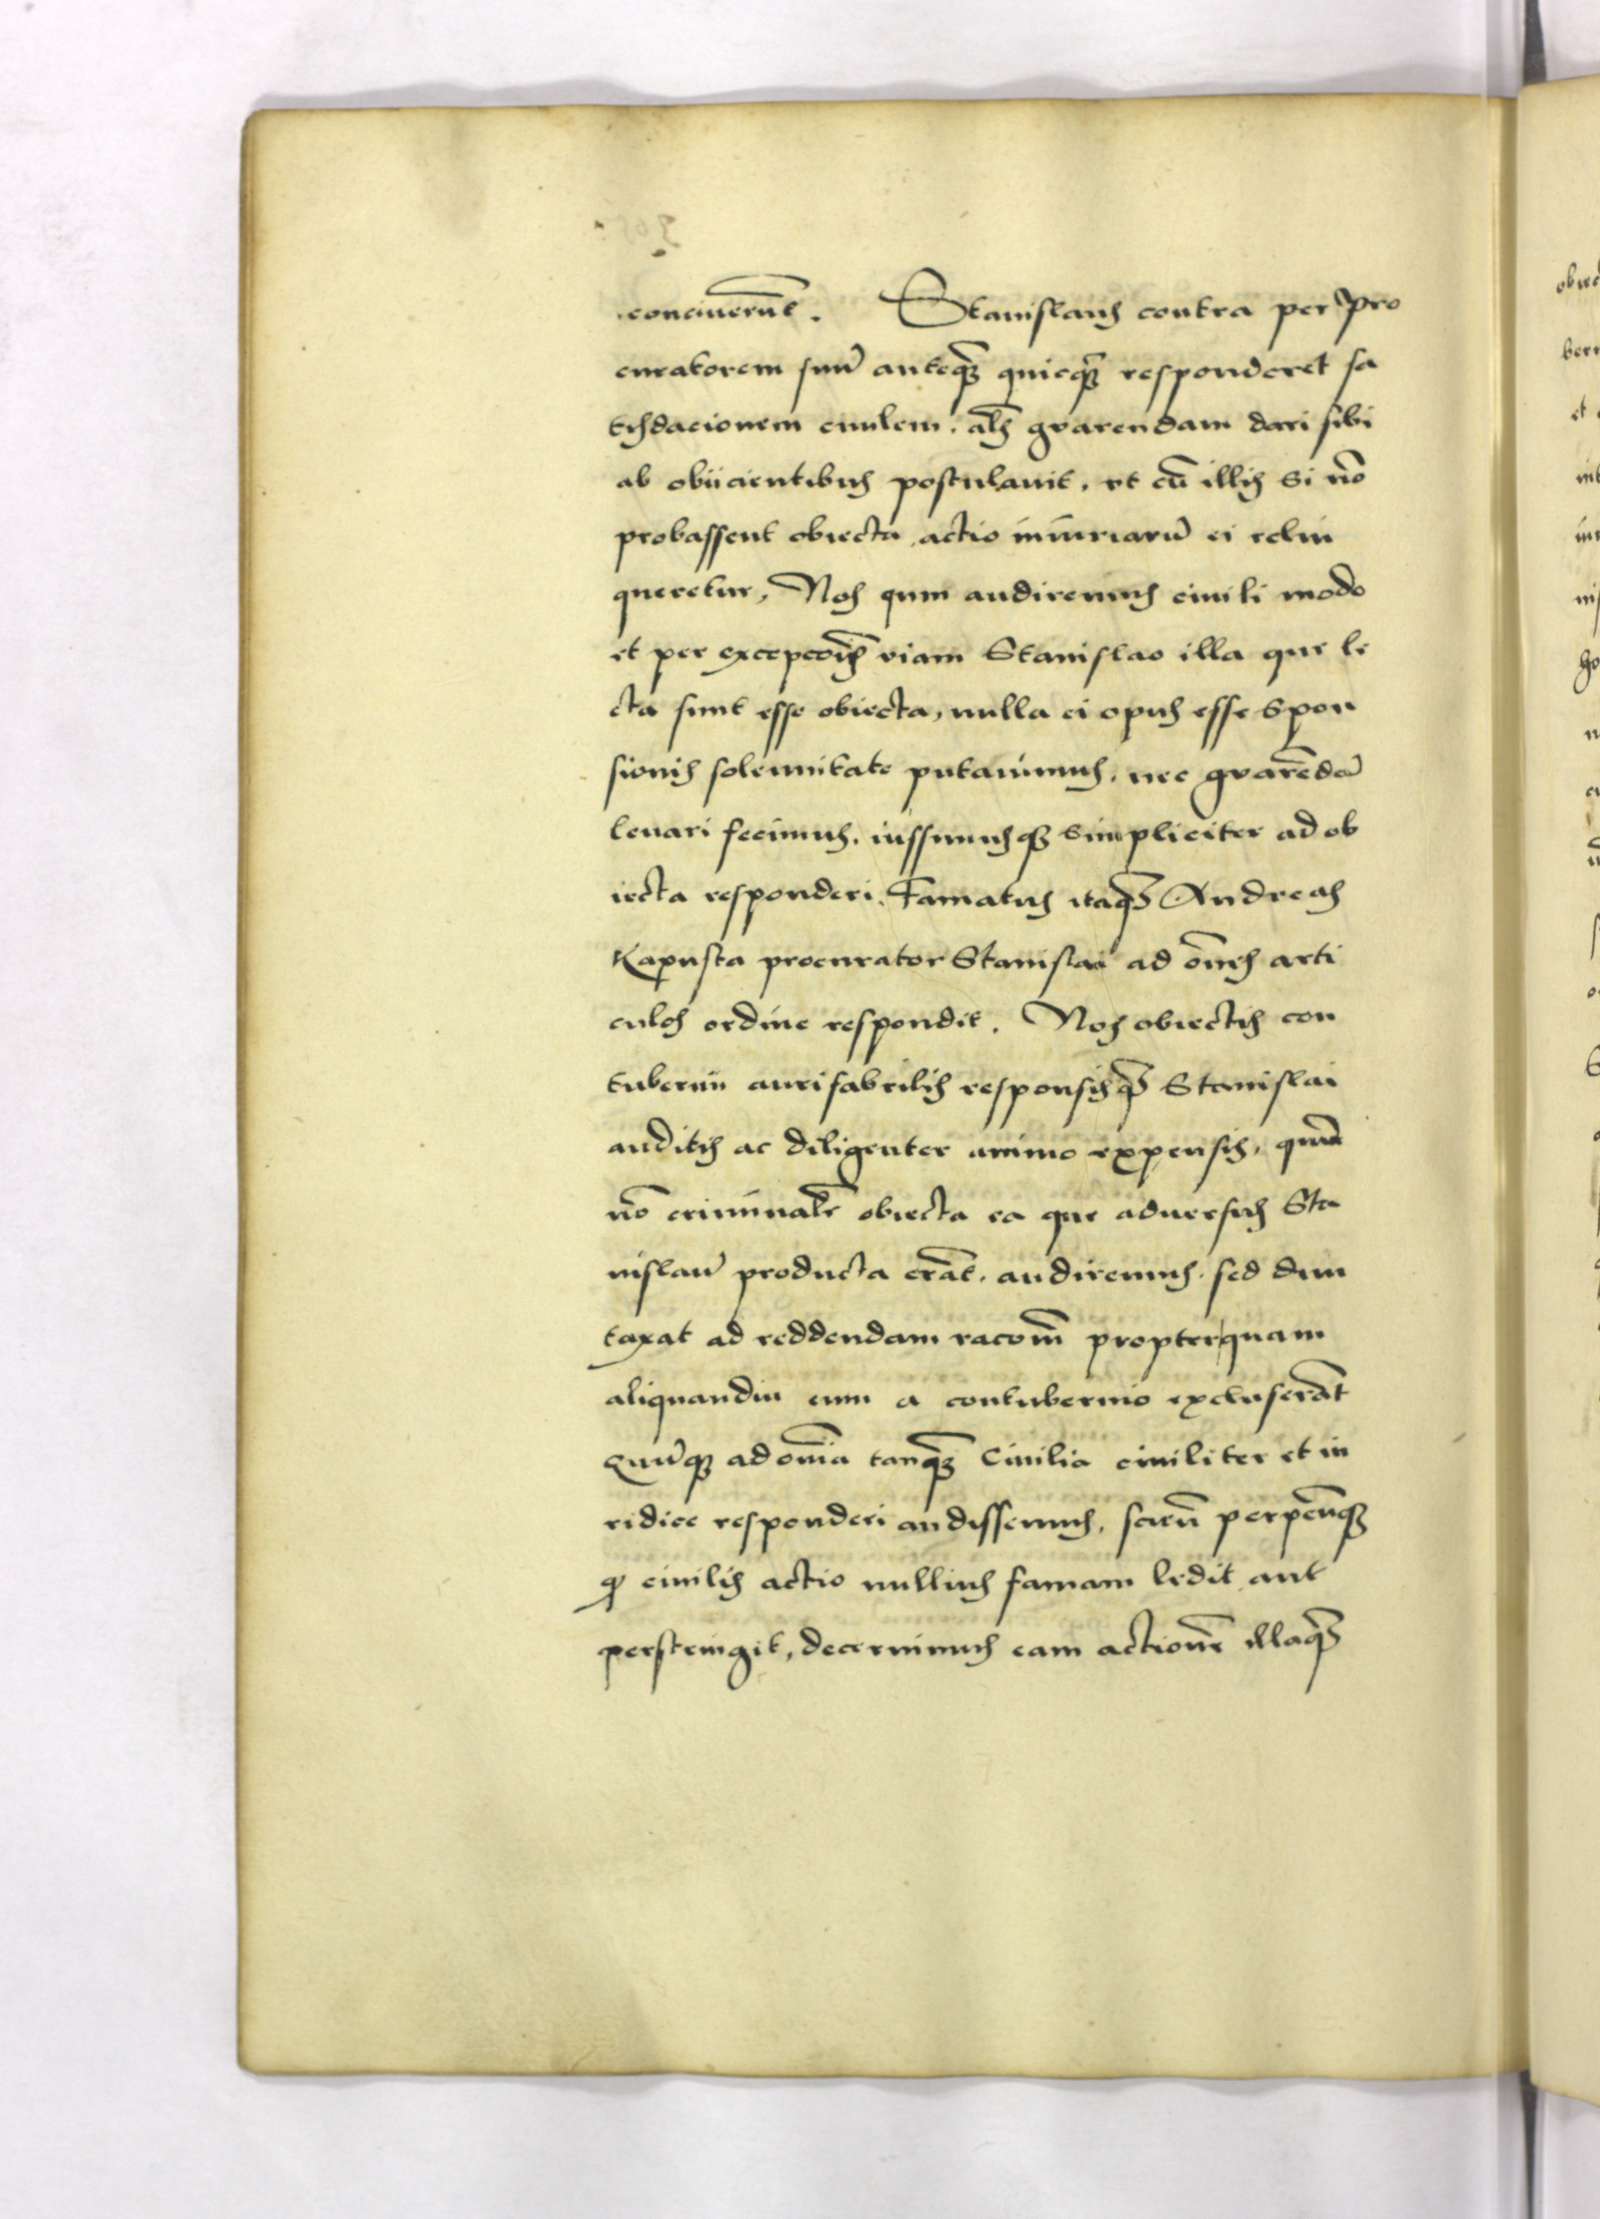 conciuerūt. Stanislaus contra per pro
curatorem suū anteqꝫ quicqꝫ responderet sa
tisdacionem ciuilem. als gvarendam dari sibi
ab obiicientibus postulauit. vt cū illis si nō
probassent obiecta actio iniuriarū ei relin
queretur, Nos qum audiremus ciuili modo
et per excepcōis viam Stanislao illa que le
cta sunt esse obiecta, nulla ei opus esse spon
sionis solennitate putauimus. nec gvarēdā
leuari fecimus. iussimusqꝫ simpliciter ad ob
iecta responderi. Famatus itaqꝫ Andreas
Kapusta procurator Stanislai ad ōmēs arti
culos ordine respondit. Nos obiectis con
tubernii aurifabrilis responsisqꝫ Stanislai
auditis ac diligenter animo expensis, qum
nō criminalr̄ obiecta ea que aduersus Sta
nislaū producta erāt. audiremus. sed dum
taxat ad reddendam racom̄ propterquam
aliquandiu eum a contubernio excluserāt
Qumqꝫ ad om̄ia tanqꝫ Ciuilia ciuiliter et iu
ridice responderi audissemus, scitū perpēsūqꝫ
ꝙ ciuilis actio nullius famam ledit aut
perstringit, decernimus eam actionē illaqꝫ